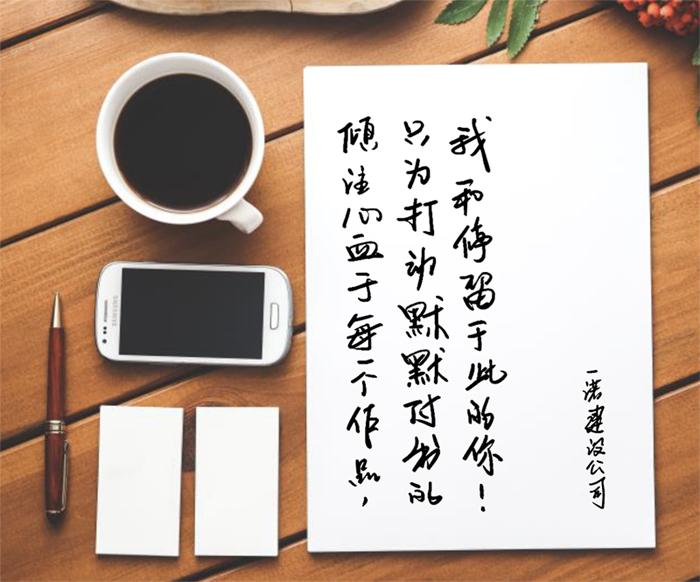 倾注心血于每一个作品，
只为打动默默付出的
我和停留于此的你！
一诺建设公司
SAMSUNG